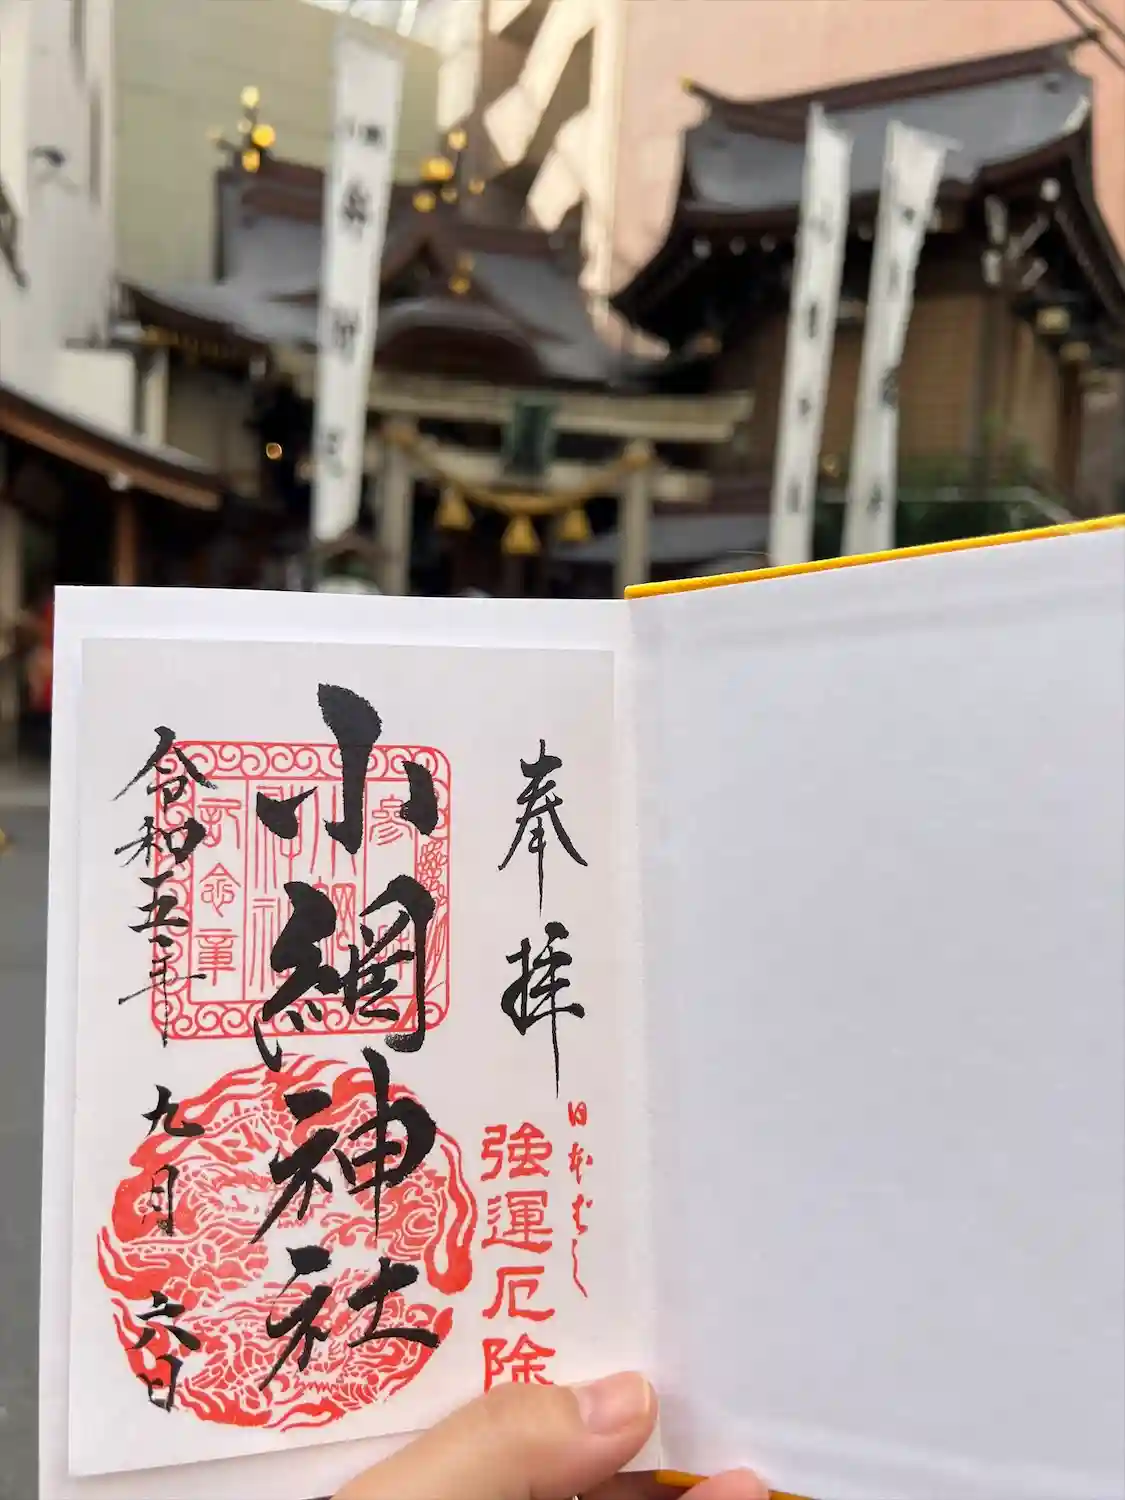 奉拝
日本ばし
強運厄除
小網神社
参拝
小網
神社
記念章
令和五年
九月
六日